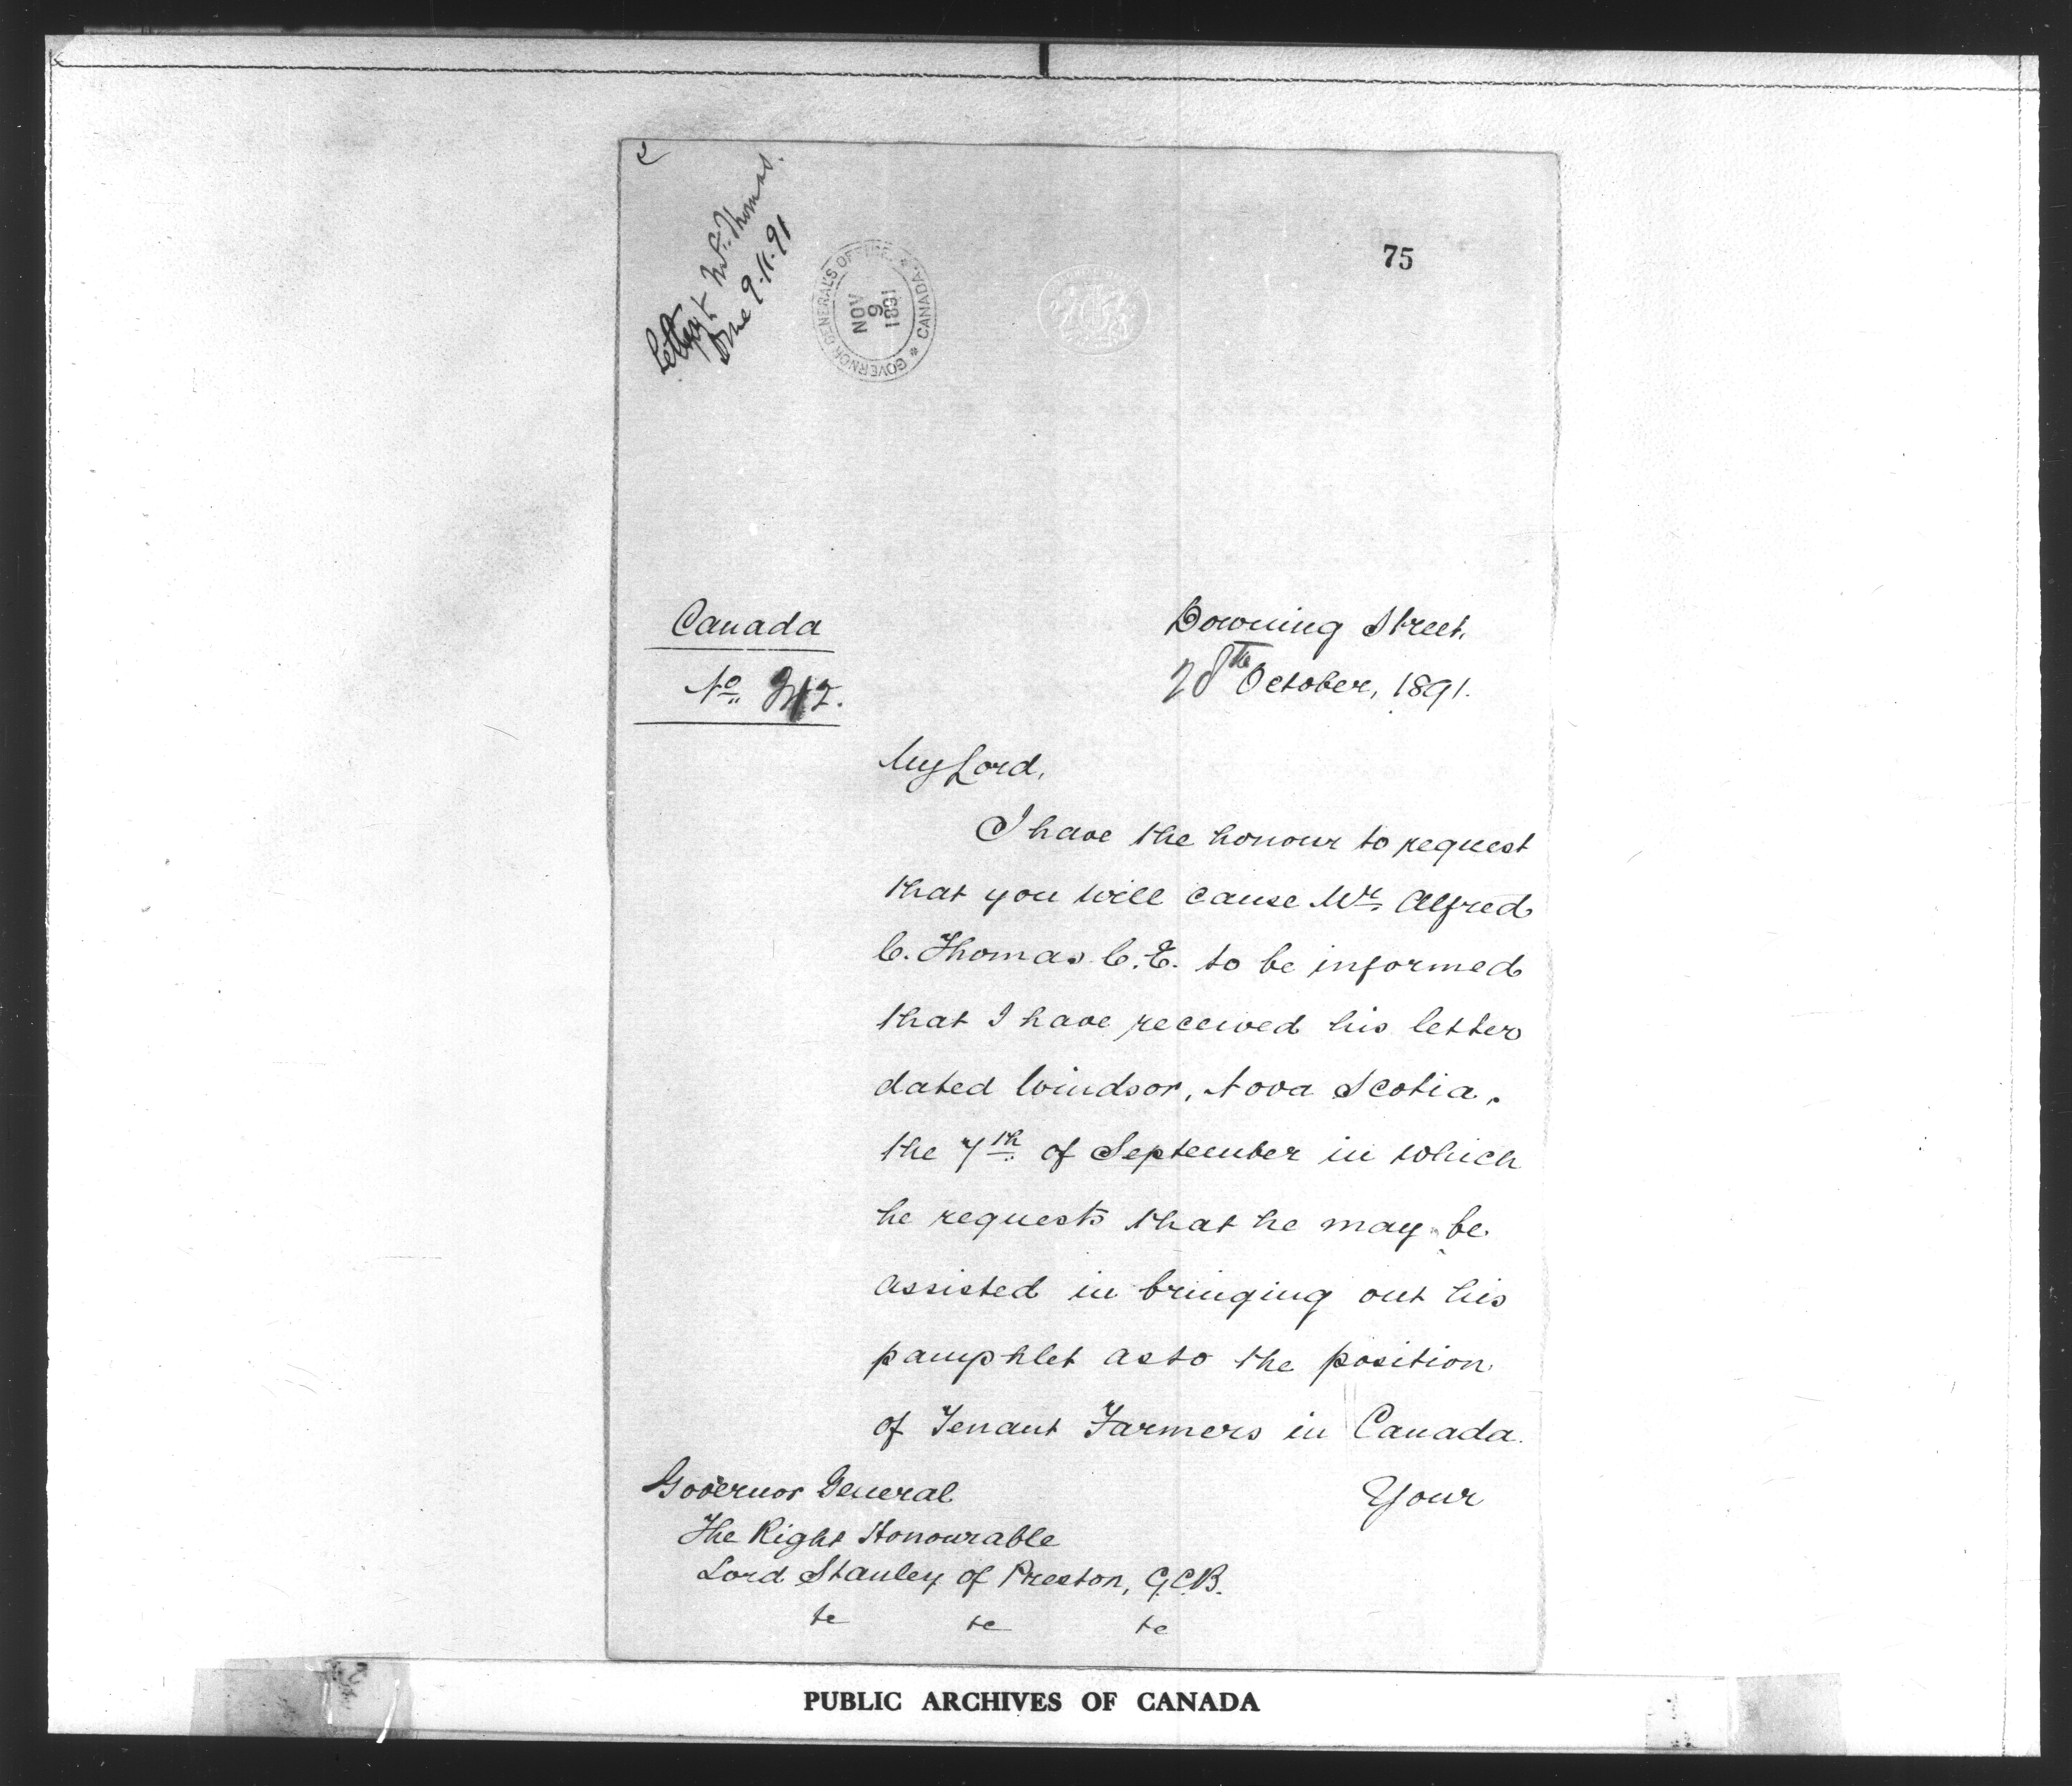 Letter to Mr. Thomas.
Done 9.11.91
GOVERNOR GENERAL'S OFFICE * CANADA *
NOV
9
1891
75
Canada
No.
Downing Street,
28th October, 1891.
My Lord,
I have the honour to request
that you will cause Mr. Alfred
C. Thomas C.E. to be informed
that I have received his letter
dated Windsor, Nova Scotia,
the 7th of September in which
he requests that he may be
assisted in bringing out his
pamphlet as to the position
of Tenant Farmers in Canada.
Your
Governor General
The Right Honourable
Lord Stanley of Preston, G.C.B.
&c &c &c
PUBLIC ARCHIVES OF CANADA